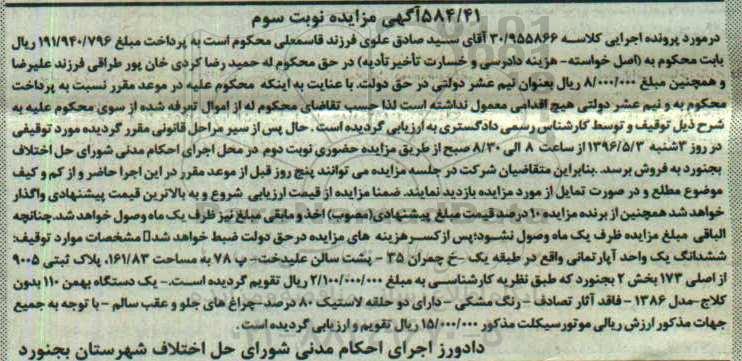 ۵۸۴/۴۱آگهی مزایده نوبت سوم
درمورد پرونده اجرایی کلاسه ۳۰/۹۵۵۸۶۶ آقای سید صادق علوی فرزند قاسمعلی محکوم است به پرداخت مبلغ ۱۹۱/۹۴۰/۷۹۶ ریال
بابت محکوم به (اصل خواسته- هزینه دادرسی و خسارت تأخیر تأدیه) در حق محکوم له حمید رضا کردی خان پور طراقی فرزند علیرضا
و همچنین مبلغ ۸/۰۰۰/۰۰۰ ریال بعنوان نیم عشر دولتی در حق دولت. با عنایت به اینکه محکوم علیه در موعد مقرر نسبت به پرداخت
محکوم به و نیم عشر دولتی هیچ اقدامی معمول نداشته است لذا حسب تقاضای محکوم له از اموال تعرفه شده از سوی محکوم علیه به
شرح ذیل توقیف و توسط کارشناس رسمی دادگستری به ارزیابی گردیده است. حال پس از سیر مراحل قانونی مقرر گردیده مورد توقیفی
در روز ۳شنبه ۱۳۹۶/۵/۳ از ساعت ۸ الی ۸/۳۰ صبح از طریق مزایده حضوری نوبت دوم در محل اجرای احکام مدنی شورای حل اختلاف
بجنورد به فروش برسد .بنابراین متقاضیان شرکت در جلسه مزایده می توانند پنج روز قبل از موعد مقرر در این اجرا حاضر و از کم و کیف
موضوع مطلع و در صورت تمایل از مورد مزایده بازدید نمایند. ضمنا مزایده از قیمت ارزیابی شروع و به بالاترین قیمت پیشنهادی واگذار
خواهد شد همچنین از برنده مزایده ۱۰ درصد قیمت مبلغ پیشنهادی(مصوب) اخذ و مابقی مبلغ نیز ظرف یک ماه وصول خواهد شد.چنانچه
الباقی مبلغ مزایده ظرف یک ماه وصول نشود؛پس از کسر هزینه های مزایده درحق دولت ضبط خواهد شد مشخصات موارد توقیف:
ششدانگ یک واحد آپارتمانی واقع در طبقه یک -خ چمران ۳۵ - پشت سالن علیدخت- پ ۷۸ به مساحت ۱۶۱/۸۳. پلاک ثبتی ۹۰۰۵
از اصلی ۱۷۳ بخش ۲ بجنورد که طبق نظریه کارشناسی به مبلغ ۲/۱۰۰/۰۰۰/۰۰۰ ریال تقویم گردیده است.- یک دستگاه بهمن ۱۱۰ بدون
کلاچ-مدل ۱۳۸۶ - فاقد آثار تصادف - رنگ مشکی - دارای دو حلقه لاستیک ۸۰ درصد-چراغ های جلو و عقب سالم - با توجه به جمیع
جهات مذکور ارزش ریالی موتورسیکلت مذکور ۱۵/۰۰۰/۰۰۰ ریال تقویم و ارزیابی گردیده است.
دادورز اجرای احکام مدنی شورای حل اختلاف شهرستان بجنورد